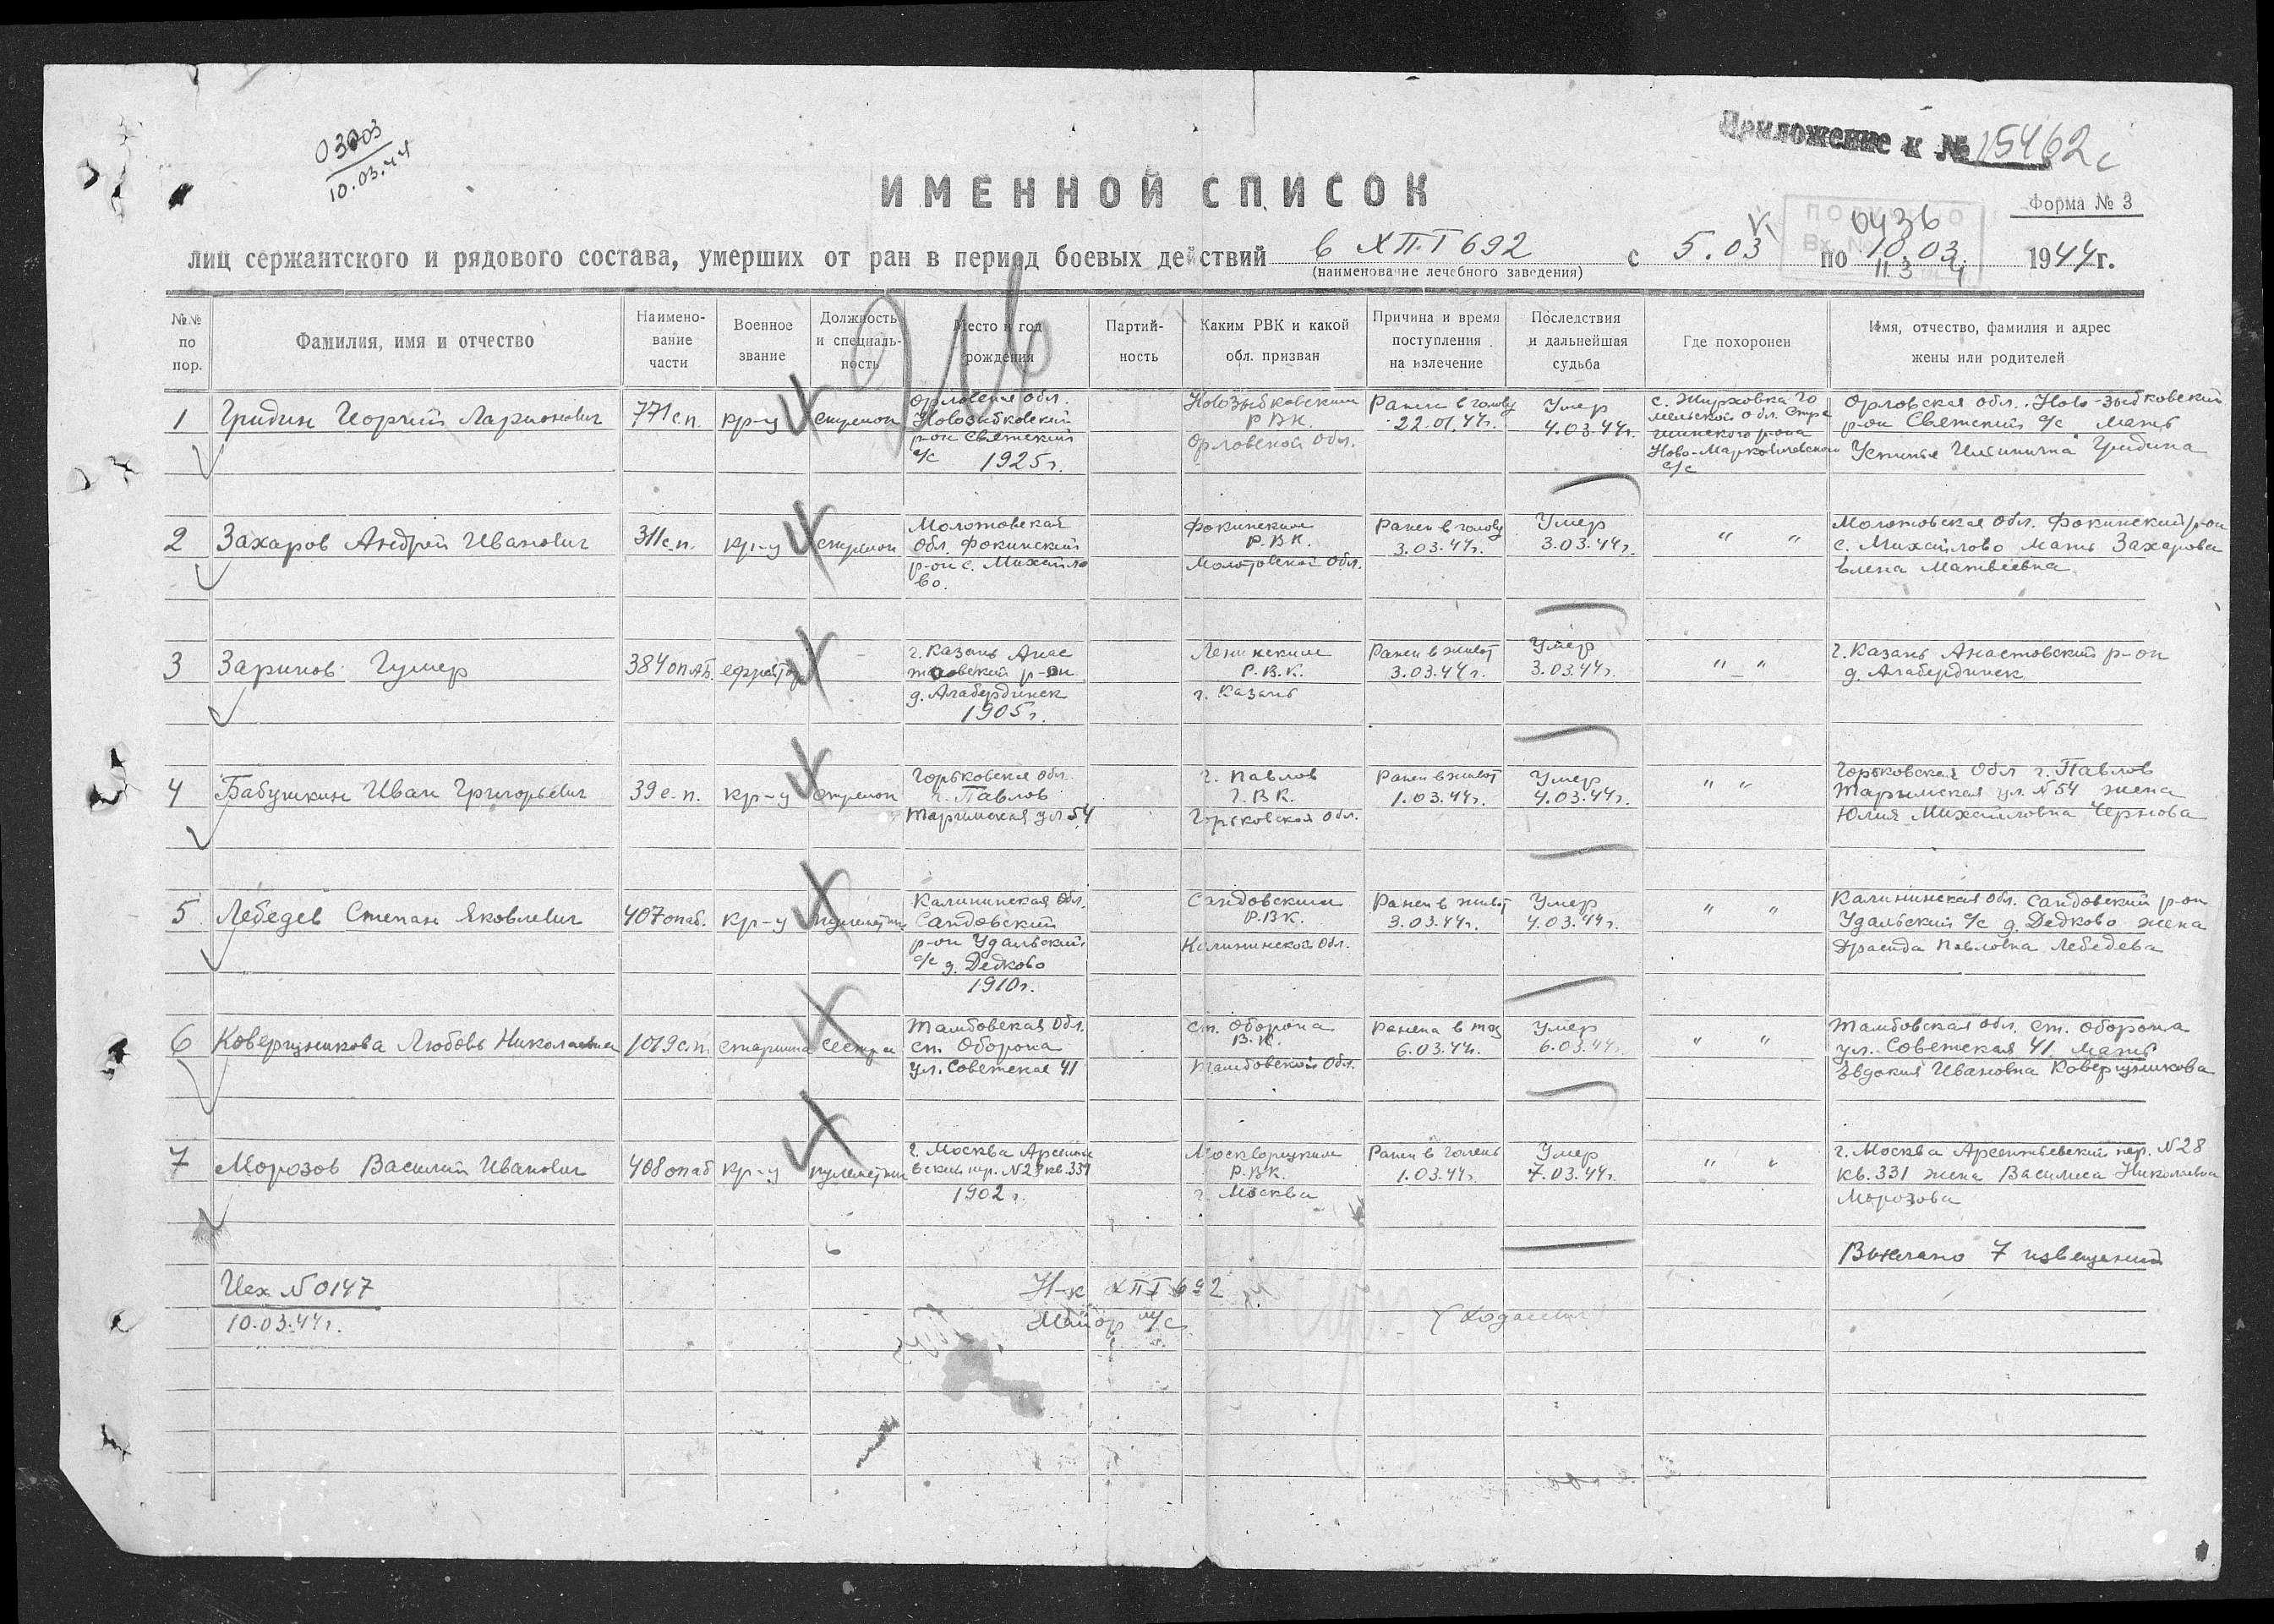 03003
10.03.44
Приложение к № 15462с
ИМЕННОЙ СПИСОК
Форма № 3
0436
лиц сержантского и рядового состава, умерших от ран в период боевых действий в ХППГ 692 с 5.03 по 10.03 1944 г.
(наименование лечебного заведения)
№№ по пор.
Фамилия, имя и отчество
Наимено-вание части
Военное звание
Должность и специаль-ность
Место и год рождения
Партий-ность
Каким РВК и какой обл. призван
Причина и время поступления на излечение
Последствия и дальнейшая судьба
Где похоронен
Имя, отчество, фамилия и адрес жены или родителей
1 Гридин Георгий Ларионович 771 с.п. кр-ц стрелок
Орловская обл.
Новозыбковский
р-он Святский
с/с 1925г.
Новозыбковским
РВК.
Орловской Обл.
Ранен в голову
22.01.44г.
Умер
4.03.44г.
с. Жирховка Го
мельской обл.
Ново-Марковичевский
с/с
Орловская обл. Ново-Зыбковский
р-он Святский с/с мать
Устинья Гридина
2 Захаров Андрей Иванович 311 с.п. кр-ц стрелок
Молотовская
Обл. Фокинский
р-он с. Михайло
во.
Фокинским
Р.В.К.
Молотовской Обл.
Ранен в голову
3.03.44г.
Умер
3.03.44г.
" "
Молотовская Обл. Фокинский р-он
с. Михайлово мать Захарова
Елена Матвеевна
3 Зарипов Гумер 384 опаб. ефрейтор -
г. Казань Анас
товский р-он
д. Агабердинск
1905г.
Ленинским
Р.В.К.
г. Казань
Ранен в живот
3.03.44г.
Умер
3.03.44г.
" "
г. Казань Анастовский р-он
д. Агабердинск
4 Бабушкин Иван Григорьевич 39 с.п. кр-ц стрелок
Горьковская обл.
г. Павлов
ул 54
г. Павлов
Г.В.К.
Горьковской Обл.
Ранен в живот
1.03.44г.
Умер
4.03.44г.
" "
Горьковская Обл г. Павлов
ул. №54 жена
Юлия Михайловна Чернова
5 Лебедев Степан Яковлевич 407 опаб. кр-ц пулеметчик
Калининская Обл.
Сандовский
р-он Удальский
с/с д. Дедково
1910г.
Сандовским
Р.В.К.
Калининской Обл.
Ранен в живот
3.03.44г.
Умер
4.03.44г.
" "
Калининская Обл. Сандовский р-он
Удальский с/с д. Дедково жена
Павловна Лебедева
6 Коверзникова Любовь Николаевна 1019 с.п. старшина сестра
Тамбовская Обл.
ст. Оборона
ул. Советская 41
ст. Оборона
В.К.
Тамбовской Обл.
Ранена в таз
6.03.44г.
Умер
6.03.44г.
" "
Тамбовская обл. ст. Оборона
ул. Советская 41. мать
Евдокия Ивановна Коверзникова
7 Морозов Василий Иванович 408 опаб кр-ц пулеметчик
г. Москва Арсеньев
вский пер. №28 кв.331
1902г.
Москворецким
Р.В.К.
г. Москва
Ранен в голень
1.03.44г.
Умер
7.03.44г.
" "
г. Москва Арсентьевский пер. №28
кв.331 жена Василиса Николаевна
Морозова
Выслано 7 извещений
Исх №0147
10.03.44г.
Н-к ХППГ 692
Майор м/с